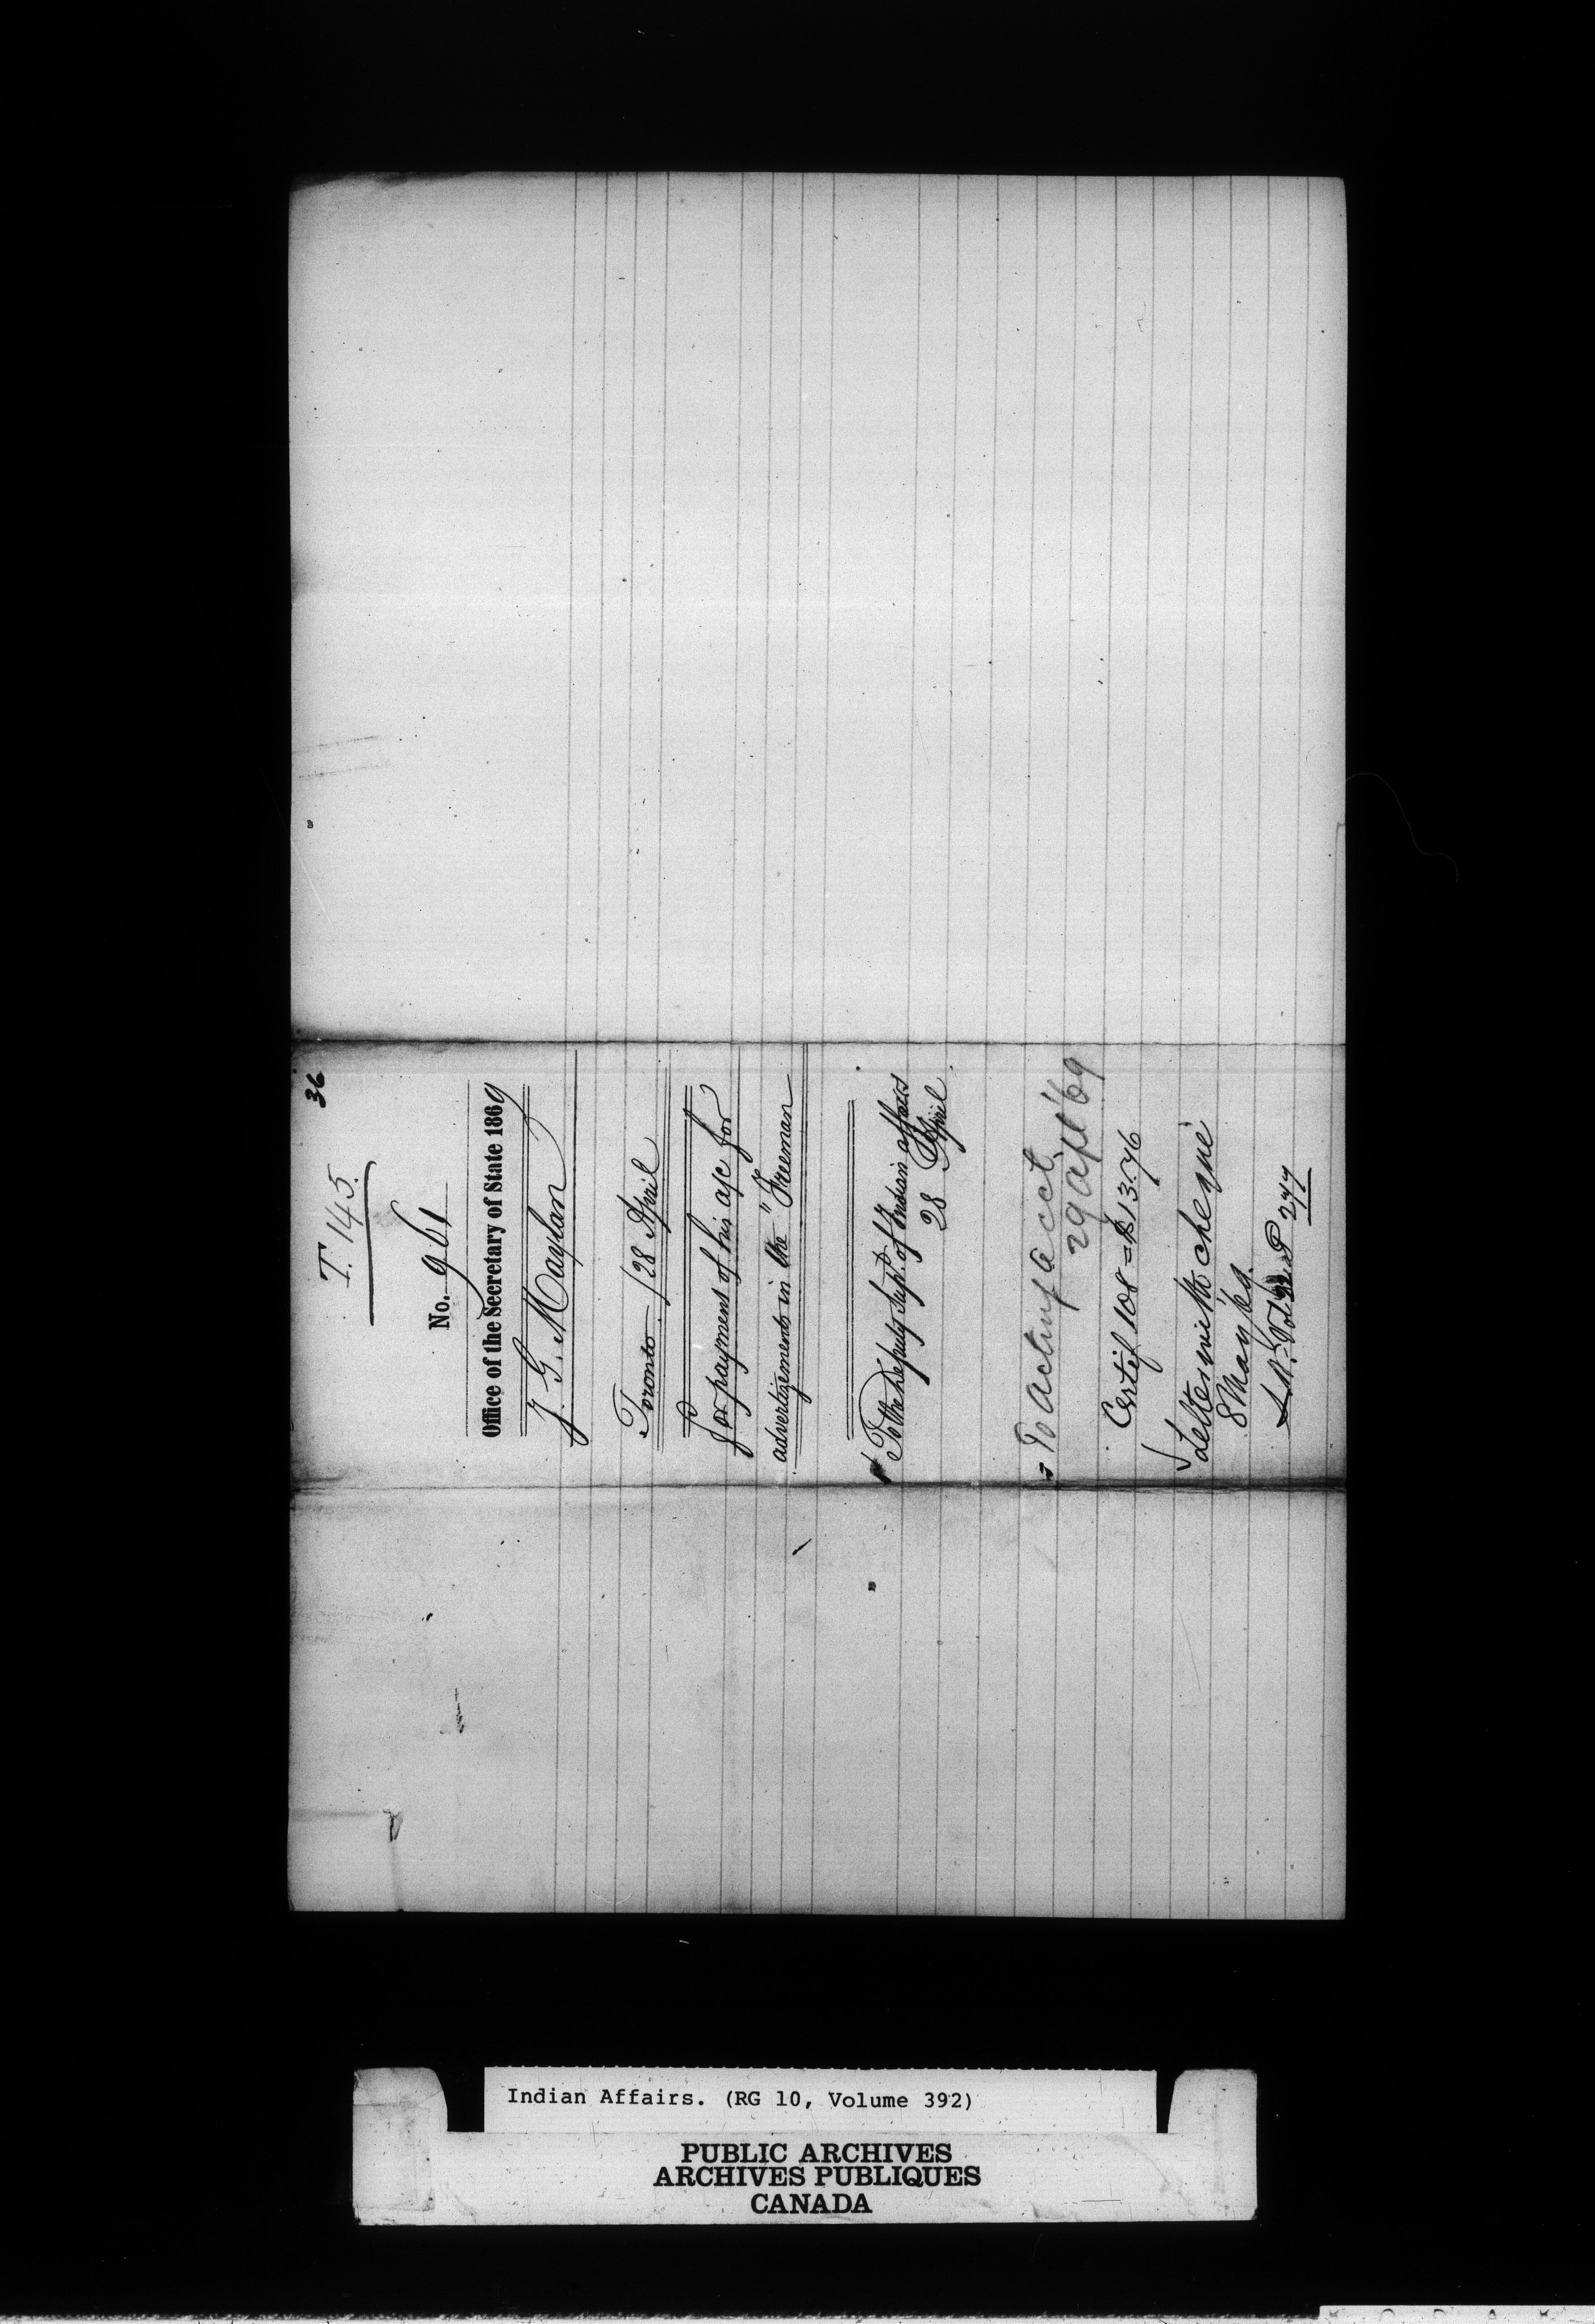 36
T. 145.
No. 961
Office of the Secretary of State 1869
J. G. Moylan
Toronto 28 April
for payment of his a/c for
advertizements in the "Freeman
To the Deputy Supt. of Indian affairs
28 April
To acting acct.
29 Apl '69
Certif 108 = $13.76
Letter with cheque
8 May '69.
P 277
Indian Affairs. (RG 10, Volume 392)
PUBLIC ARCHIVES
ARCHIVES PUBLIQUES
CANADA